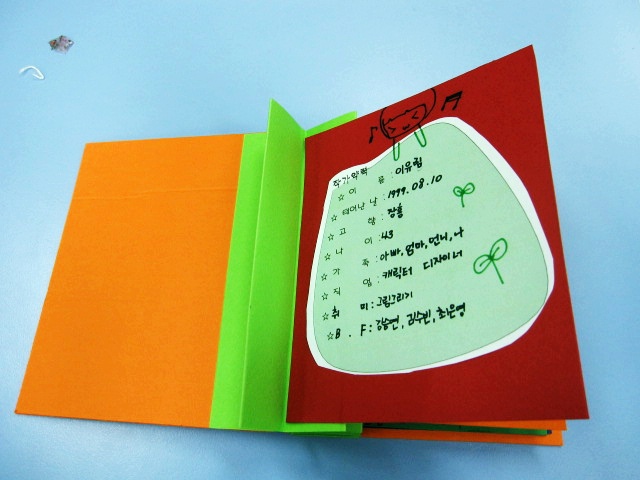 작가약력
☆ 이 름 : 이유림
☆ 태어난 날 : 1999. 08. 10
☆ 고 향 : 장흥
☆ 나 이 : 43
☆ 가 족 : 아빠, 엄마, 언니, 나
☆ 직 업 : 캐릭터 디자이너
☆ 취 미 : 그림그리기
☆ B . F : 강승연, 김수빈, 최은영